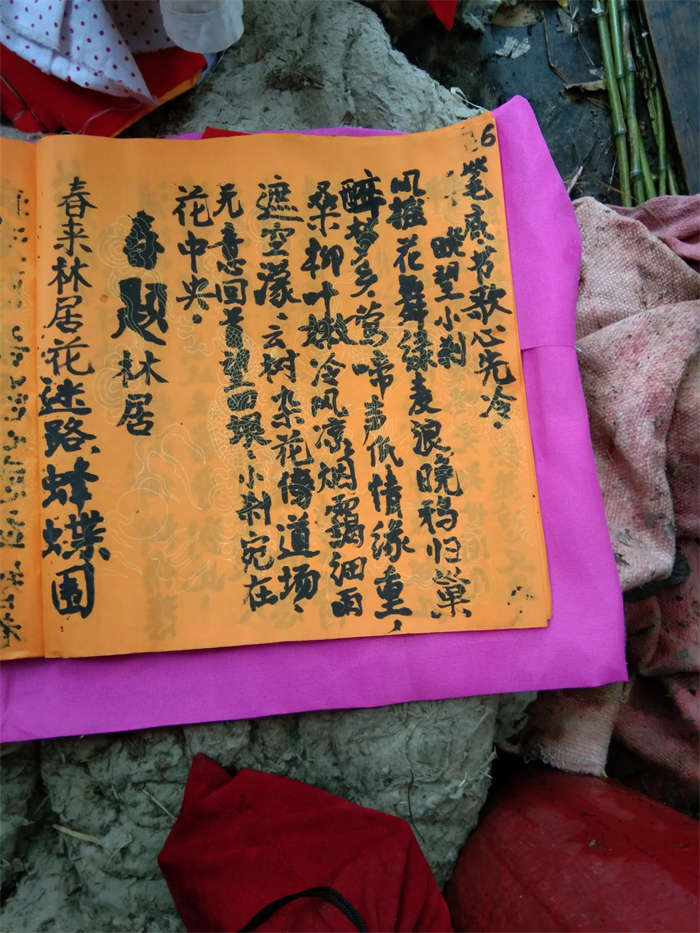 6
笔底书歌心先冷.
眺望小刹
风摇花舞绿麦浪.晚鸦归巢
醉梦乡.莺啼声低情缘重,
桑柳叶嫩冷风凉.烟霭细雨
遮空濛.云树杂花傍道场.
无意回首望西.小刹宛在
花中央.
春 林居
春来林居花迷路.蜂蝶围